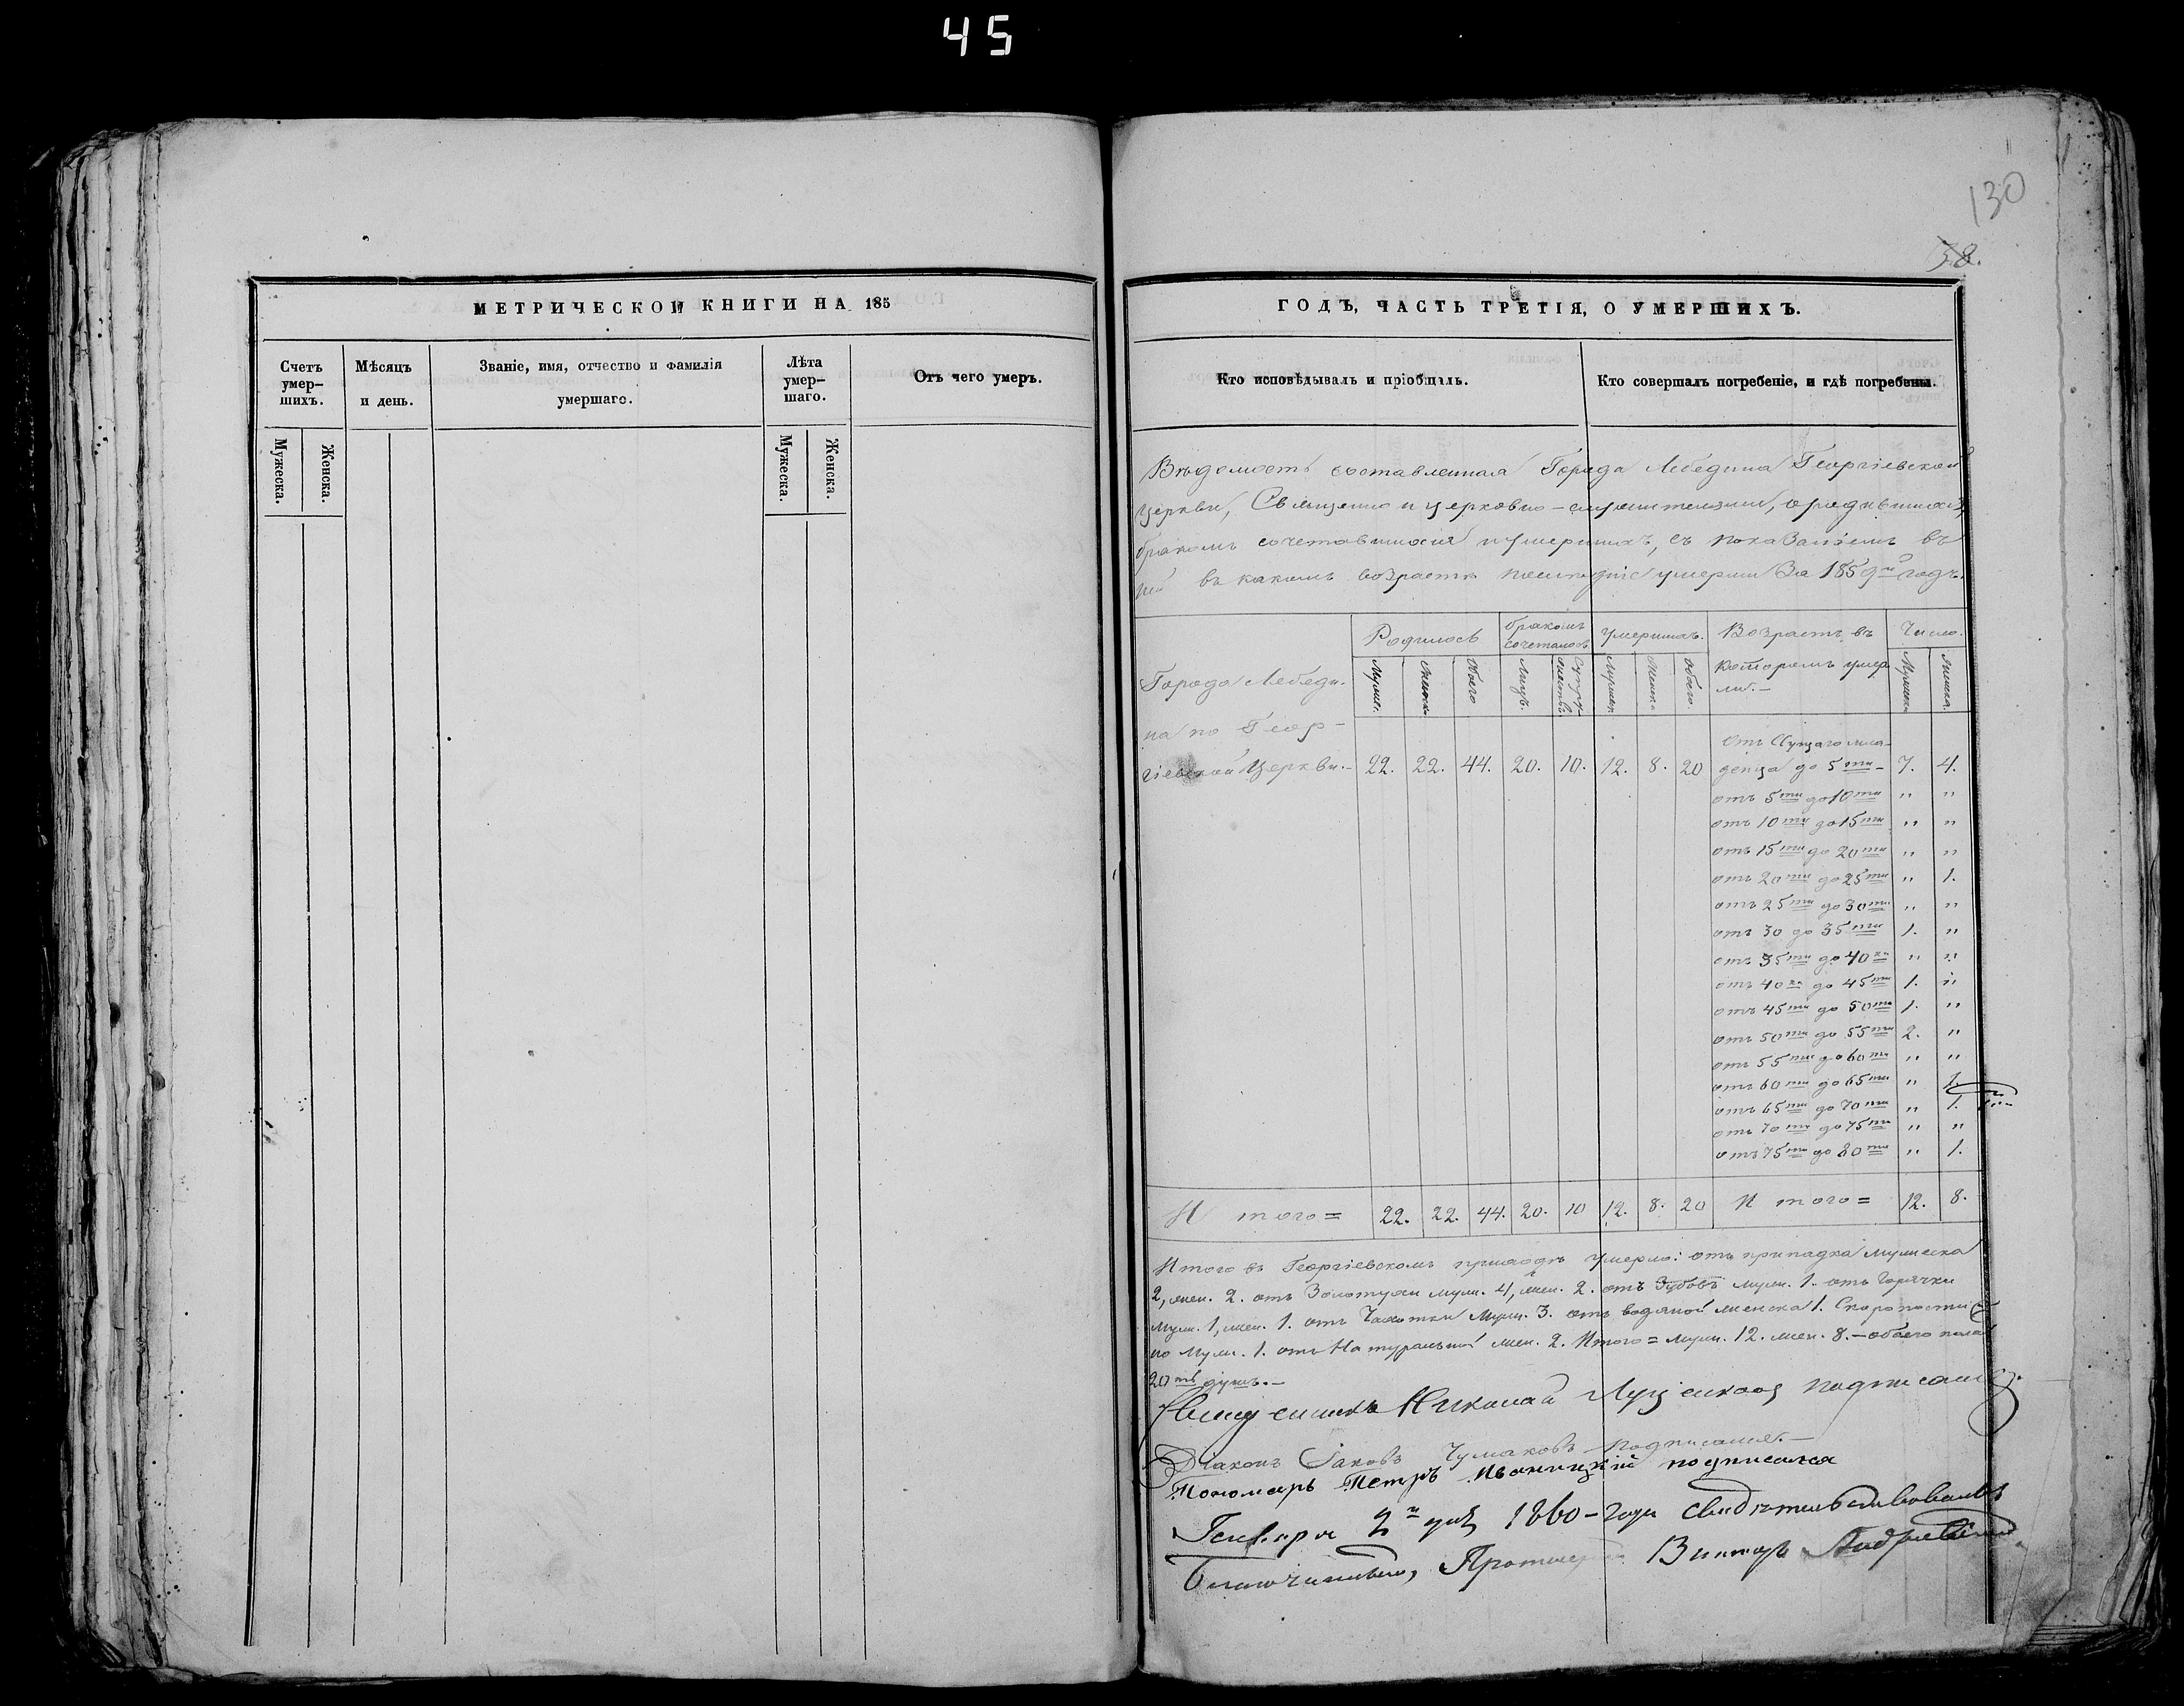 45
130
38.
МЕТРИЧЕСКОЙ КНИГИ НА 185
Счетъ умер-шихъ.
Мѣсяцъ и день.
Званіе, имя, отчество и фамилія умершаго.
Лѣта умер-шаго.
Отъ чего умеръ.
Мужеска.
Женска.
Мужеска.
Женска.
ГОДЪ, ЧАСТЬ ТРЕТІЯ, О УМЕРШИХЪ.
Кто исповѣдывалъ и пріобщалъ.
Кто совершалъ погребеніе, и гдѣ погребены.
Вѣдомость составленная Города Лебедина Георгіевской
церкви, Священно и церковно-служителями, о родившихся,
бракомъ сочетавшихся и умершихъ, съ показаніемъ въ
ней въ какомъ возрастѣ последніе умерли За 1859й годъ.
Города Лебеди-
на по Геор-
гіевской Церкви.-
Родилось
бракомъ сочеталось
умершихъ.
Возрастъ въ
которомъ умер
ли.-
Число.
Мужес.
Женск.
Обоего
Лицъ.
Супружествъ
Мужеск.
Женска
обоего.
Мужеска
Женска.
22. 22. 44. 20. 10. 12. 8. 20
Отъ Сущаго мла-
денца до 5ти - 7. 4.
отъ 5ти до 10ти " "
отъ 10ти до 15ти " "
отъ 15ти до 20ти " "
отъ 20ти до 25ти " 1.
отъ 25ти до 30ти " "
отъ 30 до 35ти 1. "
отъ 35ти до 40ка " "
отъ 40ка до 45ти 1. "
отъ 45ти до 50ти 1. "
отъ 50ти до 55ти 2. "
отъ 55ти до 60ти " "
отъ 60ти до 65ти " 1.
отъ 65ти до 70ти " 1.
отъ 70ти до 75ти " "
отъ 75ти до 80ти " 1.
И того = 22. 22. 44. 20. 10 12. 8. 20 И того = 12. 8.
Итого въ Георгіевскомъ приходѣ умерло: отъ припадка мужеска
2, жен. 2. отъ Золотухи муж. 4, жен. 2. отъ Зубовъ муж. 1. отъ Горячки
муж. 1, жен. 1. отъ Чахотки муж. 3. отъ водяной женска 1. Скоропостиж
но муж. 1. отъ Натуральной жен. 2. Итого = муж. 12. жен. 8. - обоего пола
20ть душъ.-
Священникъ Николай подписался.
Діаконъ Іаковъ Чумаковъ подписался.-
Пономарь Петръ Иваницкій подписался
Генваря 2го дня 1860-года свидѣтельствовалъ
Благочинный, Протоіерей Викторъ